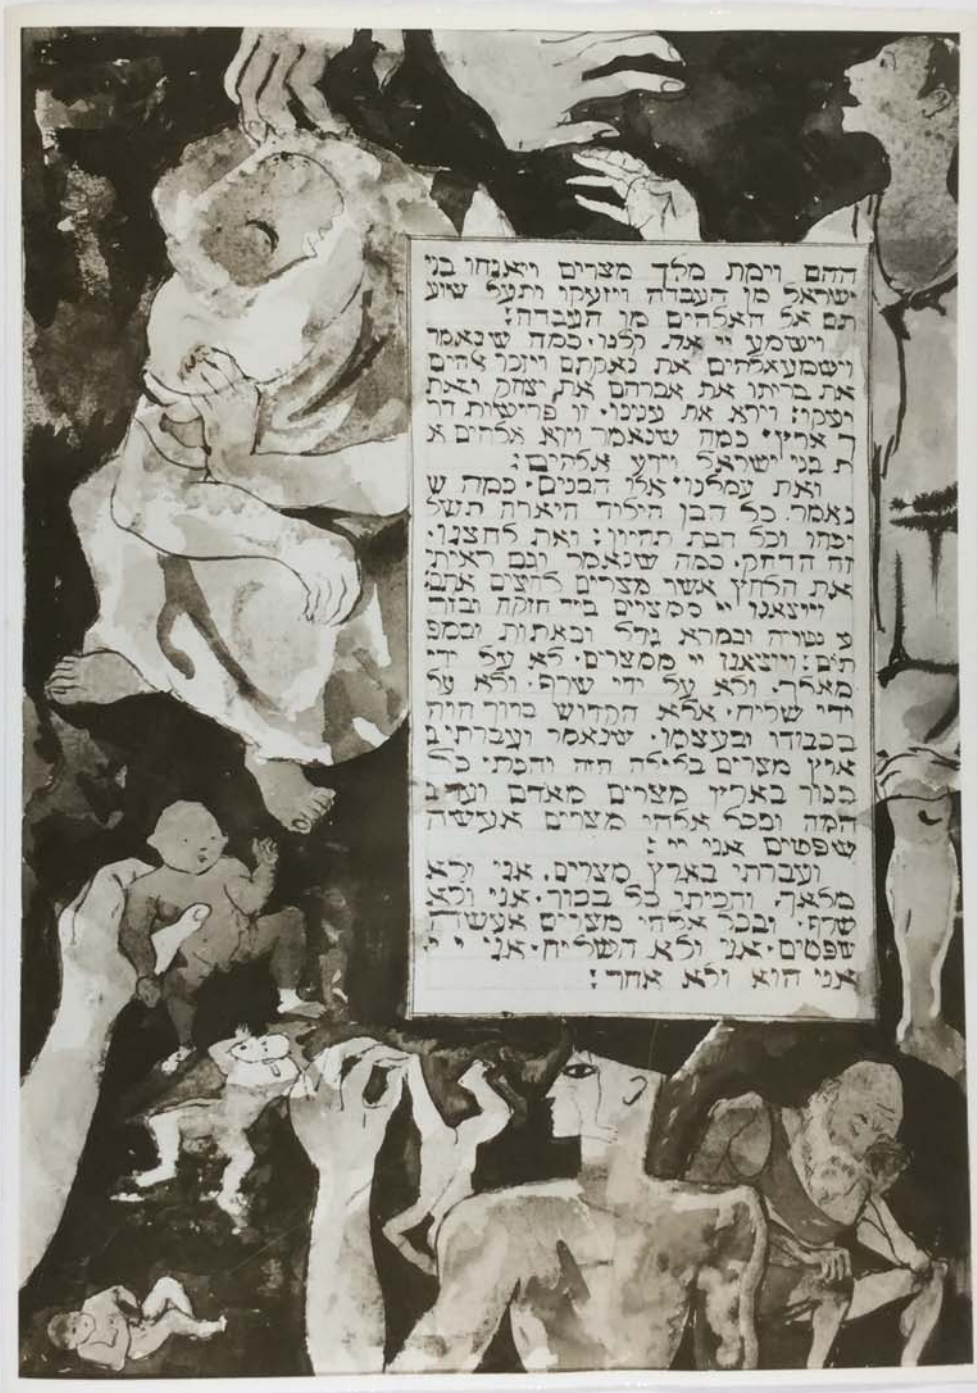 ההם וימת מלך מצרים ויאנחו בני
ישראל מן העבדה ויזעקו ותעל שוע
תם אל האלהים מן העבדה:
וישמע יי את קלנו. כמה שנאמר
וישמע אלהים את נאקתם ויזכר אלהים
את בריתו את אברהם את יצחק ואת
יעקו: וירא את ענינו. זו פרישות דר
ך ארץ. כמה שנאמר וירא אלהים א
ת בני ישראל וידע אלהים:
ואת עמלנו. אלו הבנים. כמה ש
נאמר. כל הבן הילוד היארה תשל
יכהו וכל הבת תחיון: ואת לחצנו.
זה הדחק. כמה שנאמר וגם ראיתי
את הלחץ אשר מצרים לחצים אתם:
ויוצאנו יי ממצרים ביד חזקה ובזר
ע נטויה ובמרא גדל ובאתות ובמפ
תים: ויוציאנו יי ממצרים. לא על ידי
מלאך. ולא על ידי שרף. ולא על
ידי שליח. אלא הקדוש ברוך הוא
בכבודו ובעצמו. שנאמר ועברתי ב
ארץ מצרים בלילה הזה והכתי כל
בכור בארץ מצרים מאדם ועד ב
המה ובכל אלהי מצרים אעשה
שפטים אני יי:
ועברתי בארץ מצרים. אני ולא
מלאך. והכיתי כל בכור. אני ולא
שרף. ובכל אלהי מצרים אעשה
שפטים. אני ולא השליח. אני יי
אני הוא ולא אחר: